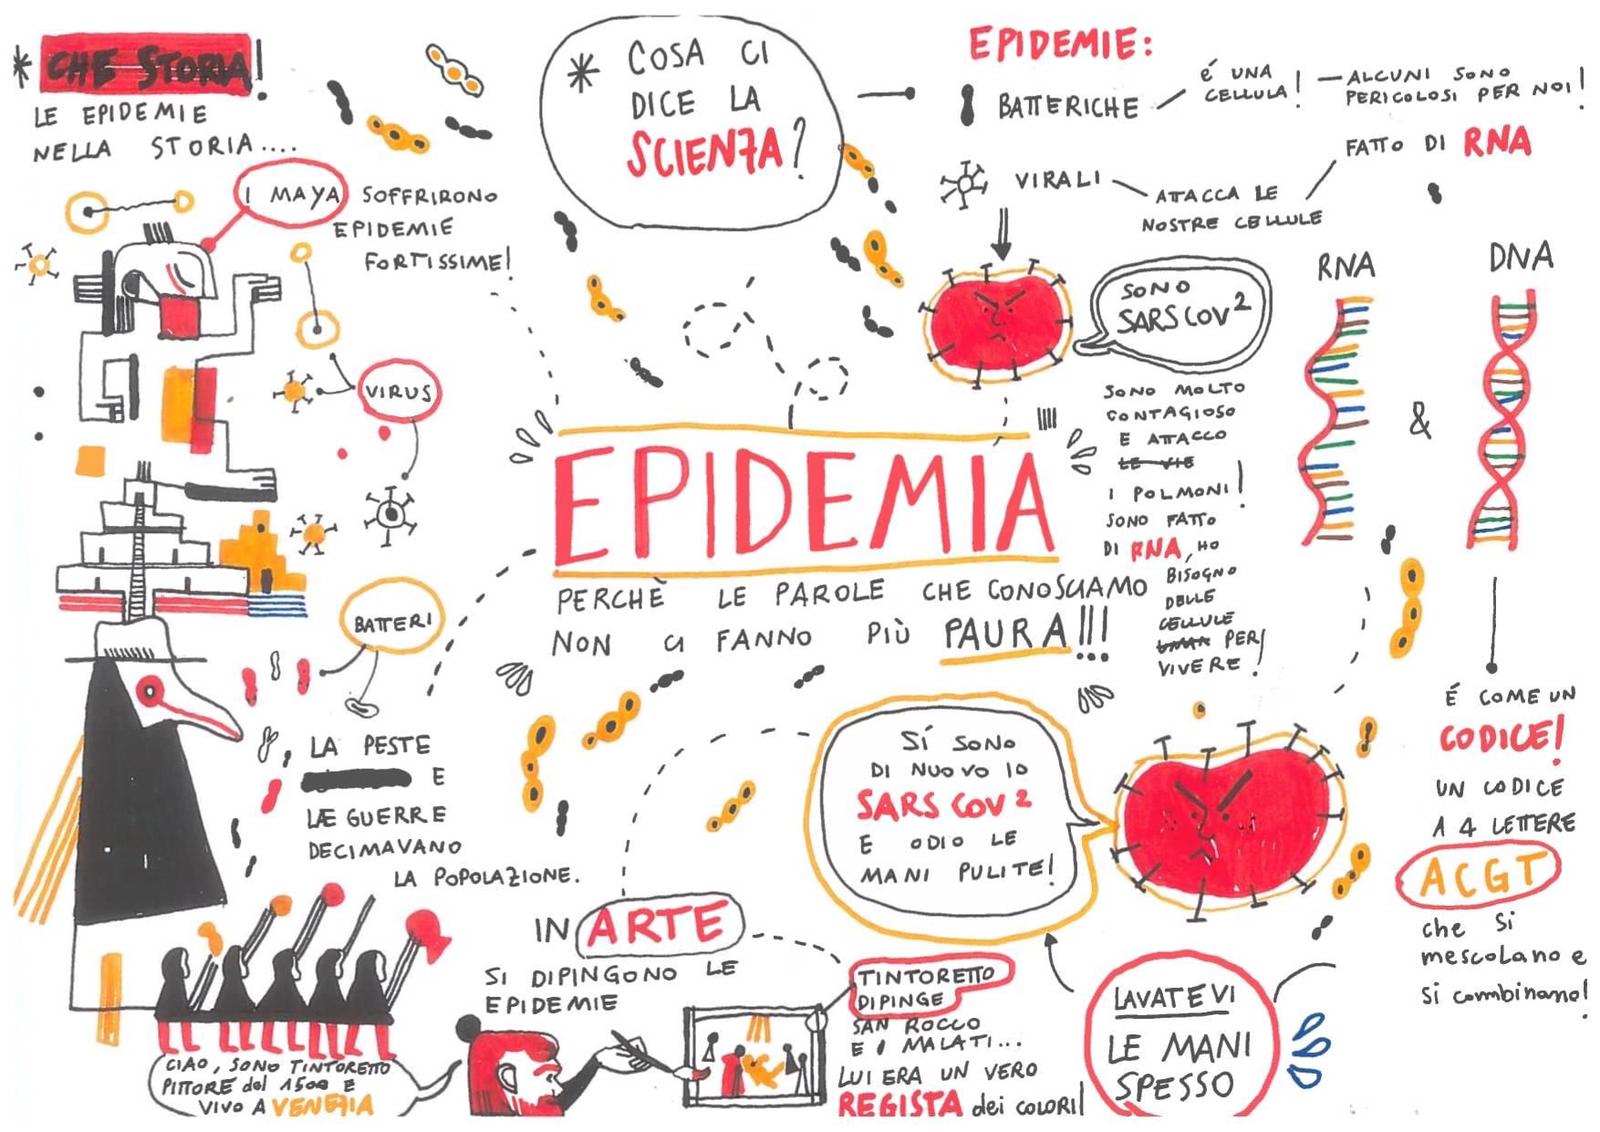 * CHE STORIA!
LE EPIDEMIE
NELLA STORIA....
I MAYA SOFFRIRONO
EPIDEMIE
FORTISSIME!
VIRUS
BATTERI
LA PESTE
E
LE GUERRE
DECIMAVANO
LA POPOLAZIONE.
* COSA CI
DICE LA
SCIENZA?
EPIDEMIE:
BATTERICHE
É UNA
CELLULA!
— ALCUNI SONO
PERICOLOSI PER NOI!
VIRALI
ATTACCA LE
NOSTRE CELLULE
FATTO DI RNA
SONO
SARS COV 2
SONO MOLTO
CONTAGIOSO
E ATTACCO
LE VIE
I POLMONI!
SONO FATTO
DI RNA, HO
BISOGNO
DELLE
CELLULE
PER
VIVERE!
RNA
&
DNA
É COME UN
CODICE!
UN CODICE
A 4 LETTERE
ACGT
che si
mescolano e
si combinano!
EPIDEMIA
PERCHÈ LE PAROLE CHE CONOSCIAMO
NON CI FANNO PIÙ PAURA!!!
SÍ SONO
DI NUOVO IO
SARS COV 2
E ODIO LE
MANI PULITE!
LAVATEVI
LE MANI
SPESSO
IN ARTE
SI DIPINGONO LE
EPIDEMIE
TINTORETTO
DIPINGE
SAN ROCCO
E I MALATI...
LUI ERA UN VERO
REGISTA dei COLORI!
CIAO, SONO TINTORETTO
PITTORE del 1500 E
VIVO A VENEZIA